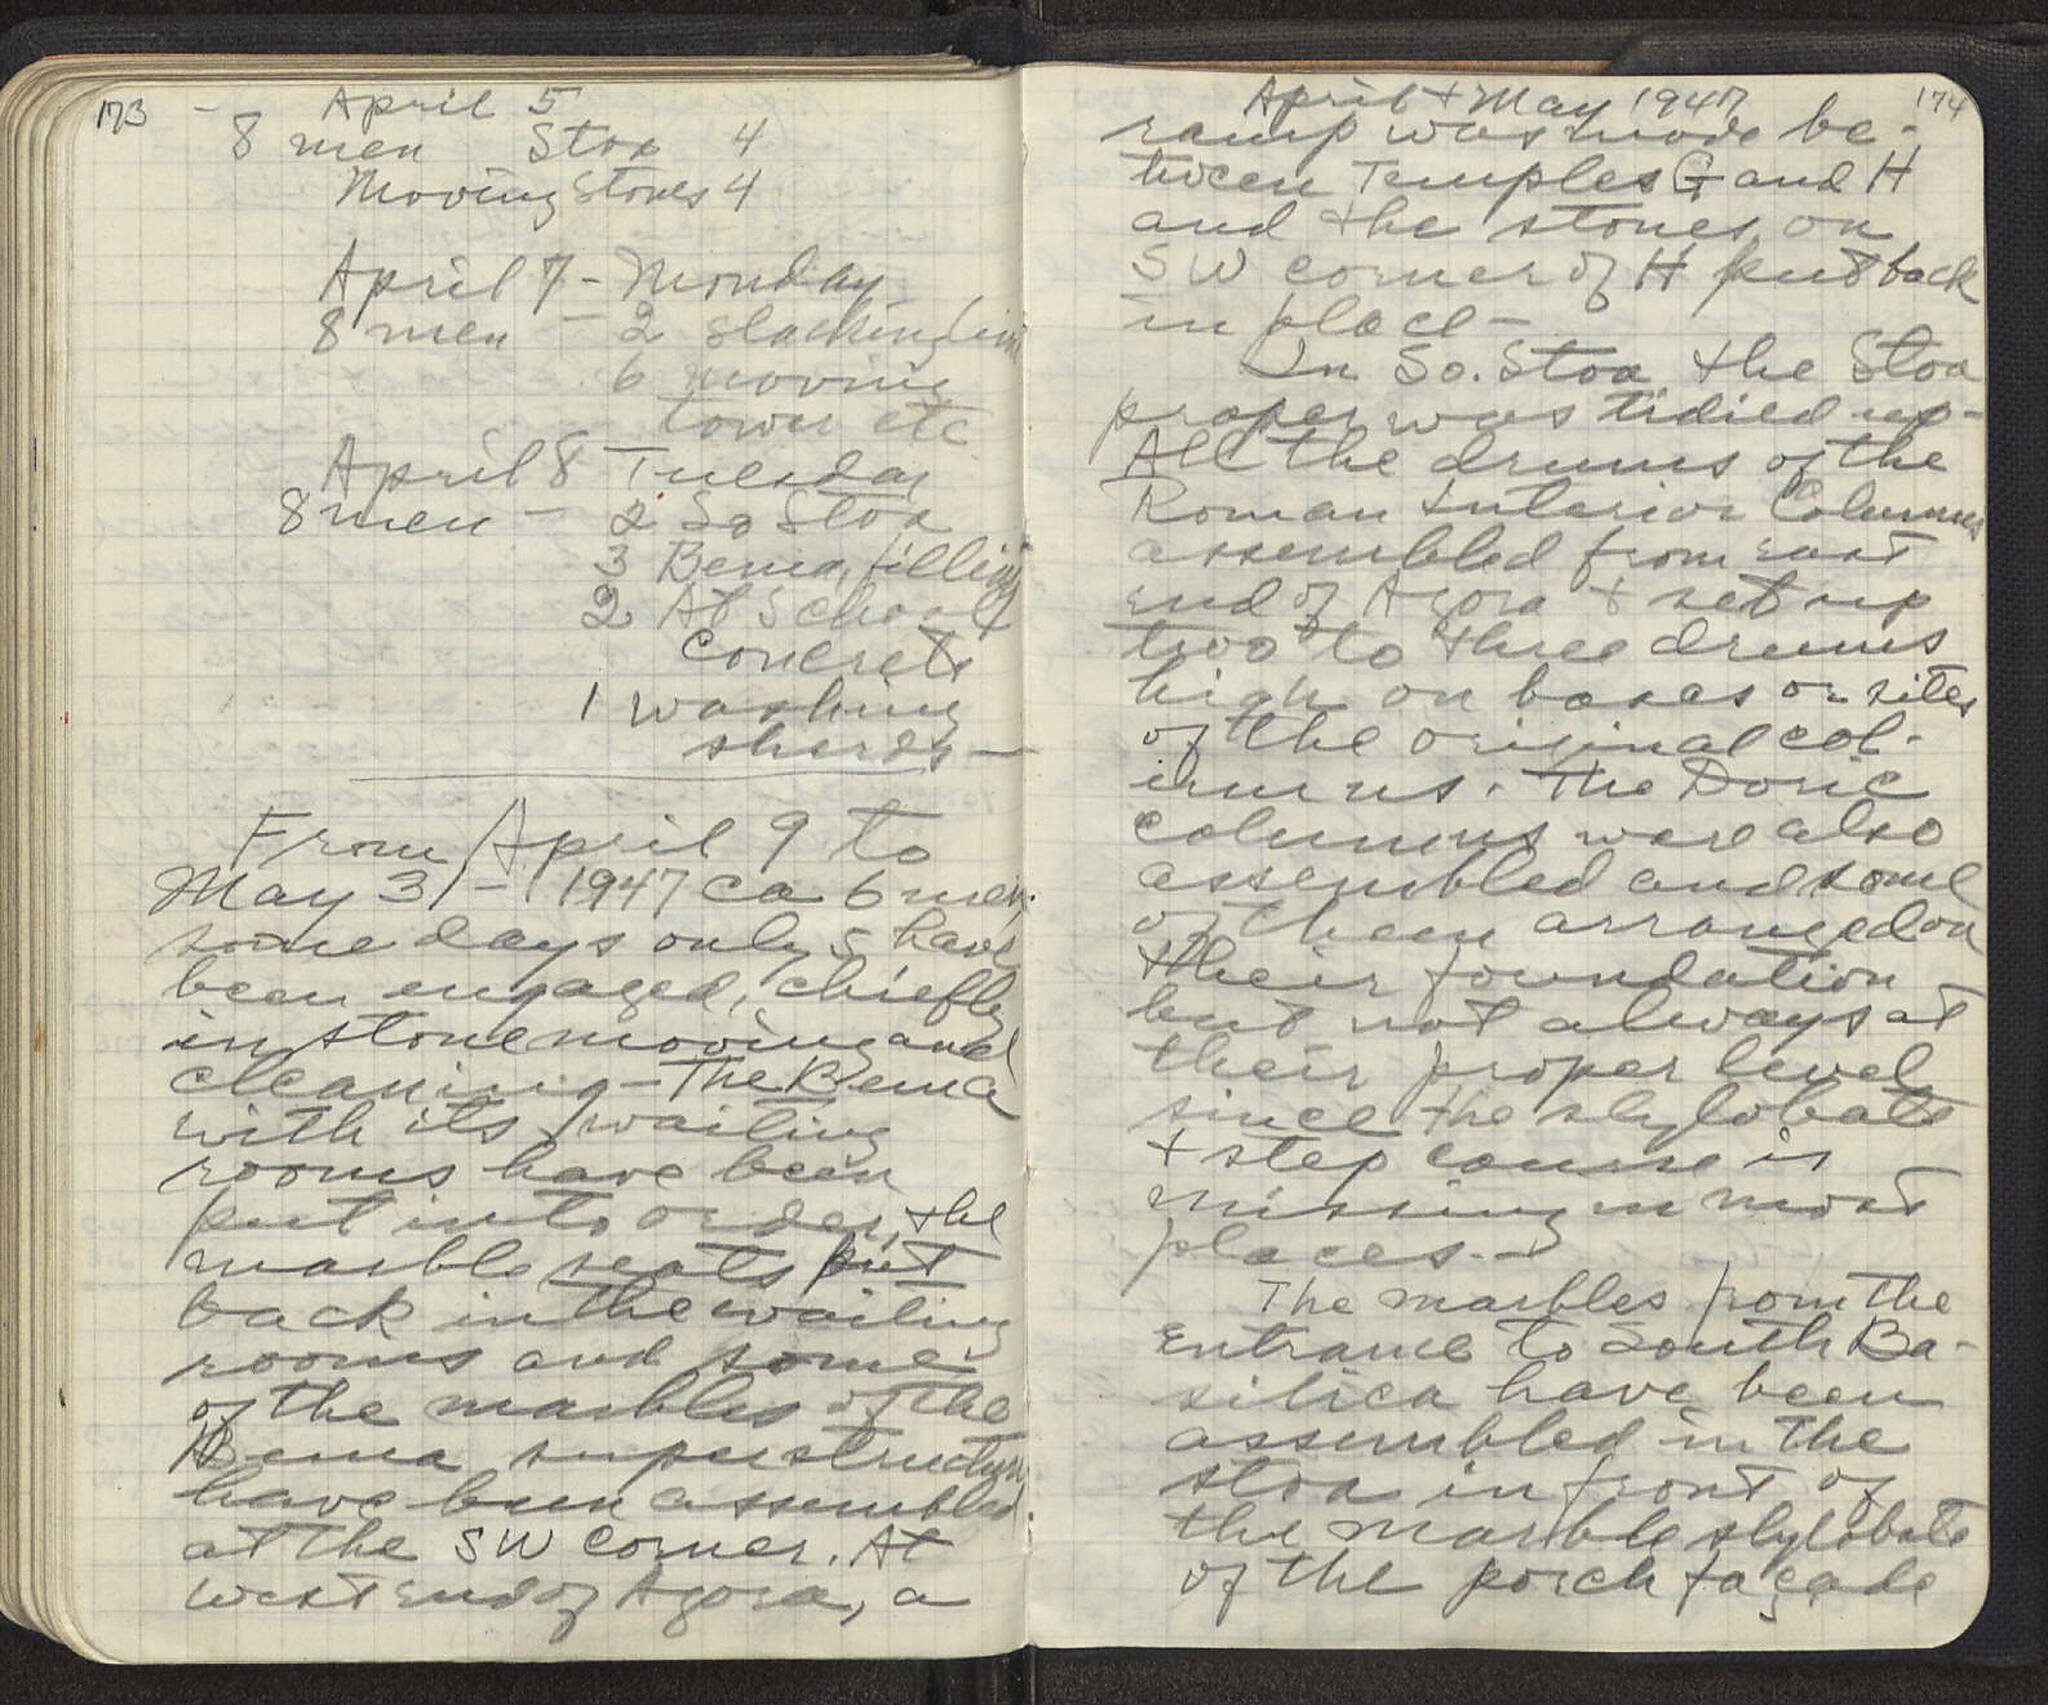 173
April 5
8 men Stoa 4
Moving Stones 4
April 7 - Monday
8 men - 2 slacking lime
6 moving
tower etc
April 8 Tuesday
8 men - 2 So Stoa
3 Bema, filling
2 At School
concrete
1 washing
sherds -
From April 9 to
May 31 - 1947 ca 6 men,
some days only 5 have
been engaged, chiefly
in stone moving and
cleaning - The Bema
with its waiting
rooms have been
put into order, the
marble seats put
back in the waiting
rooms and some
of the marbles of the
Bema superstructure
have been assembled
at the SW corner. At
west end of Agora, a
April + May 1947
174
ramp was made be-
tween Temples G and H
and the stones on
SW corner of H put back
in place -
In So. Stoa the Stoa
proper was tidied up -
All the drums of the
Roman Interior Columns
assembled from east
end of Agora & set up
two to three drums
high on bases or sites
of the original col-
umns. The Doric
columns were also
assembled and some
of them arranged on
their foundation
but not always at
their proper level
since the stylobate
+ step course is
missing in most
places. -
The marbles from the
Entrance to South Ba-
silica have been
assembled in the
stoa in front of
the marble stylobate
of the porch façade